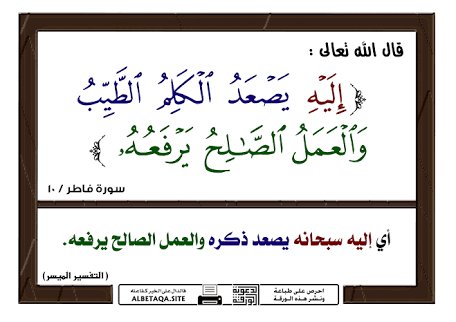 قال الله تعالى :
﴿ إِلَيْهِ يَصْعَدُ ٱلْكَلِمُ ٱلطَّيِّبُ
وَٱلْعَمَلُ ٱلصَّـٰلِحُ يَرْفَعُهُۥ ﴾
سورة فاطر / ١٠
أي إليه سبحانه يصعد ذكره والعمل الصالح يرفعه.
( التفسير الميسر )
احرص على طباعة
ونشر هذه الورقة
لدعوته بورقة
فالدال على الخير كفاعله
ALBETAQA.SITE